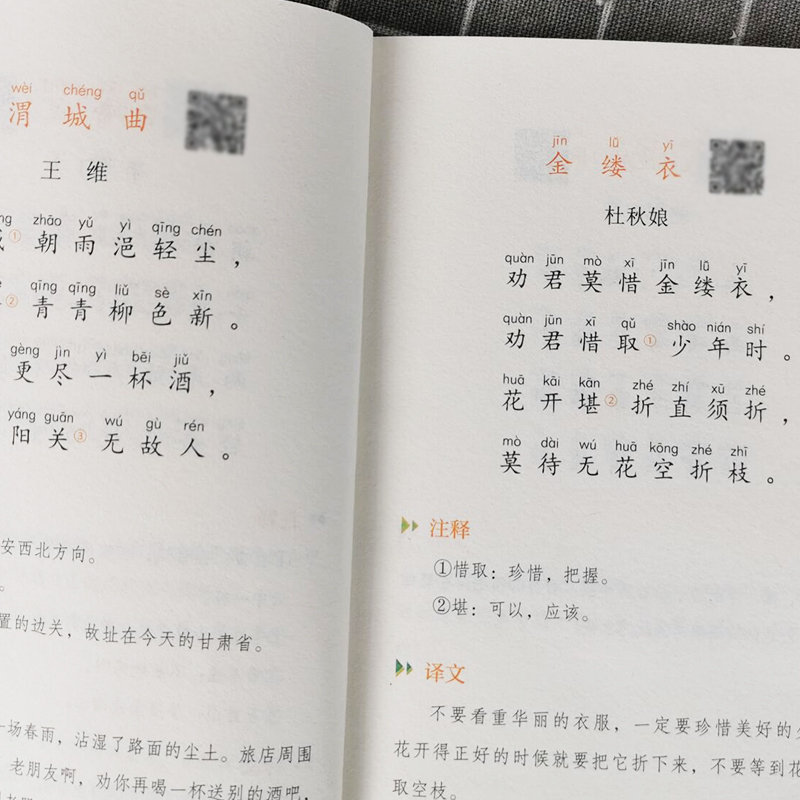 wèi chéng qǔ
渭城曲
王维
zhāo yǔ yì qīng chén
①朝雨浥轻尘，
qīng qīng liǔ sè xīn
②青青柳色新。
gèng jìn yì bēi jiǔ
更尽一杯酒，
yáng guān wú gù rén
阳关③无故人。
安西北方向。
置的边关，故址在今天的甘肃省。
一场春雨，沾湿了路面的尘土。旅店周围
老朋友啊，劝你再喝一杯送别的酒吧，
jīn lǚ yī
金缕衣
杜秋娘
quàn jūn mò xī jīn lǚ yī
劝君莫惜金缕衣，
quàn jūn xī qǔ shào nián shí
劝君惜取①少年时。
huā kāi kān zhé zhí xū zhé
花开堪②折直须折，
mò dài wú huā kōng zhé zhī
莫待无花空折枝。
注释
①惜取：珍惜，把握。
②堪：可以，应该。
译文
不要看重华丽的衣服，一定要珍惜美好的
花开得正好的时候就要把它折下来，不要等到花
取空枝。